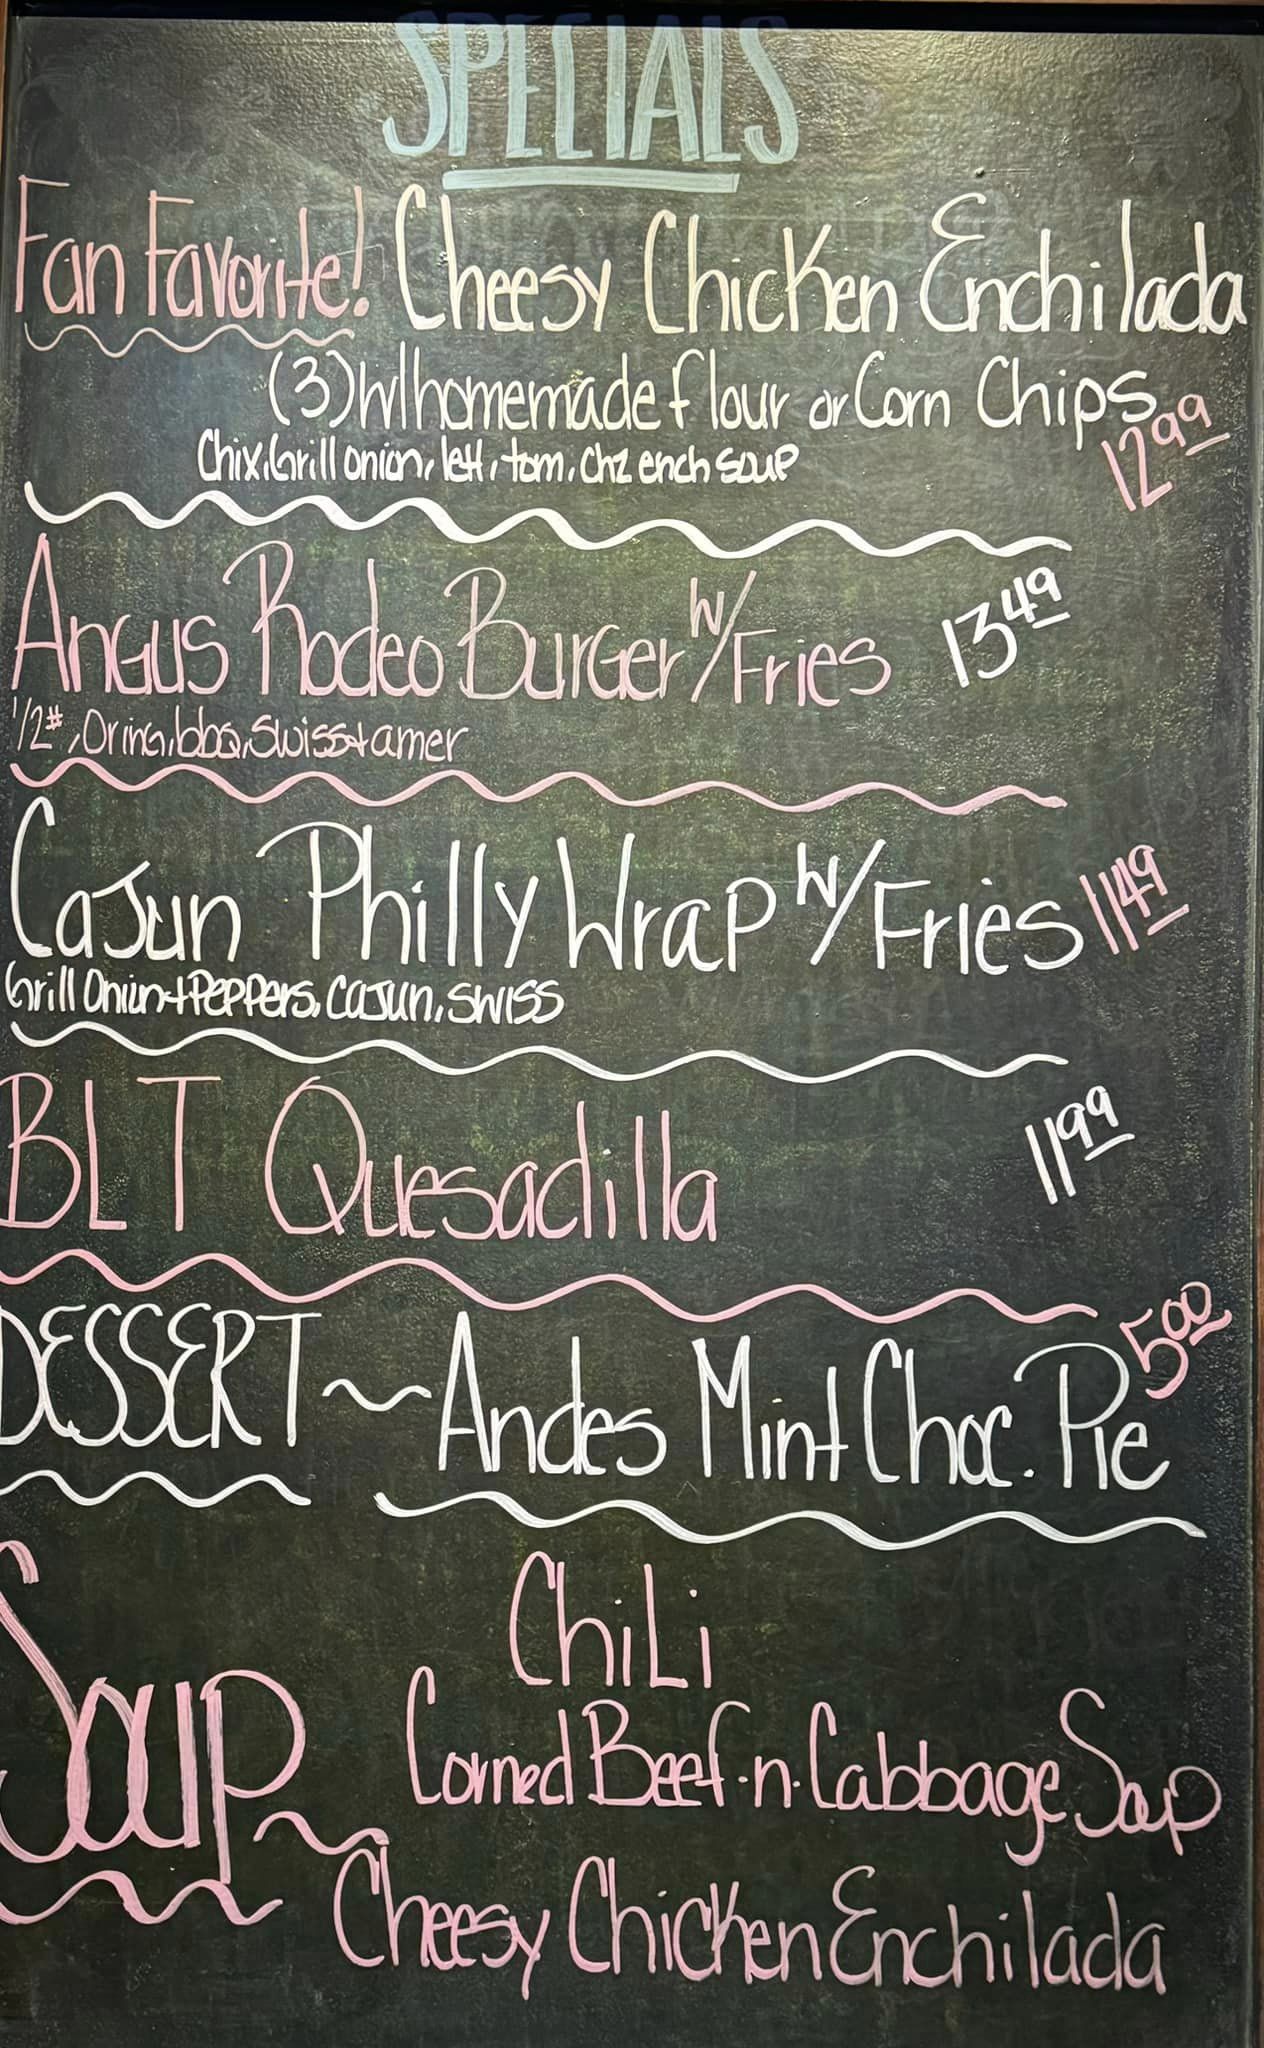 SPECIALS
Fan Favorite! Cheesy Chicken Enchilada
(3) w/homemade flour or Corn Chips 12.99
Chix, Grill onion, lett, tom, chz ench soup
Angus Rodeo Burger w/Fries 13.49
1/2#, O ring, bbq, Swiss + amer
Cajun Philly Wrap w/Fries 11.49
Grill Onion + Peppers, Cajun, Swiss
BLT Quesadilla 11.99
DESSERT ~ Andes Mint Choc. Pie 5.00
Soup ~ Chili
Corned Beef-n-Cabbage Soup
Cheesy Chicken Enchilada